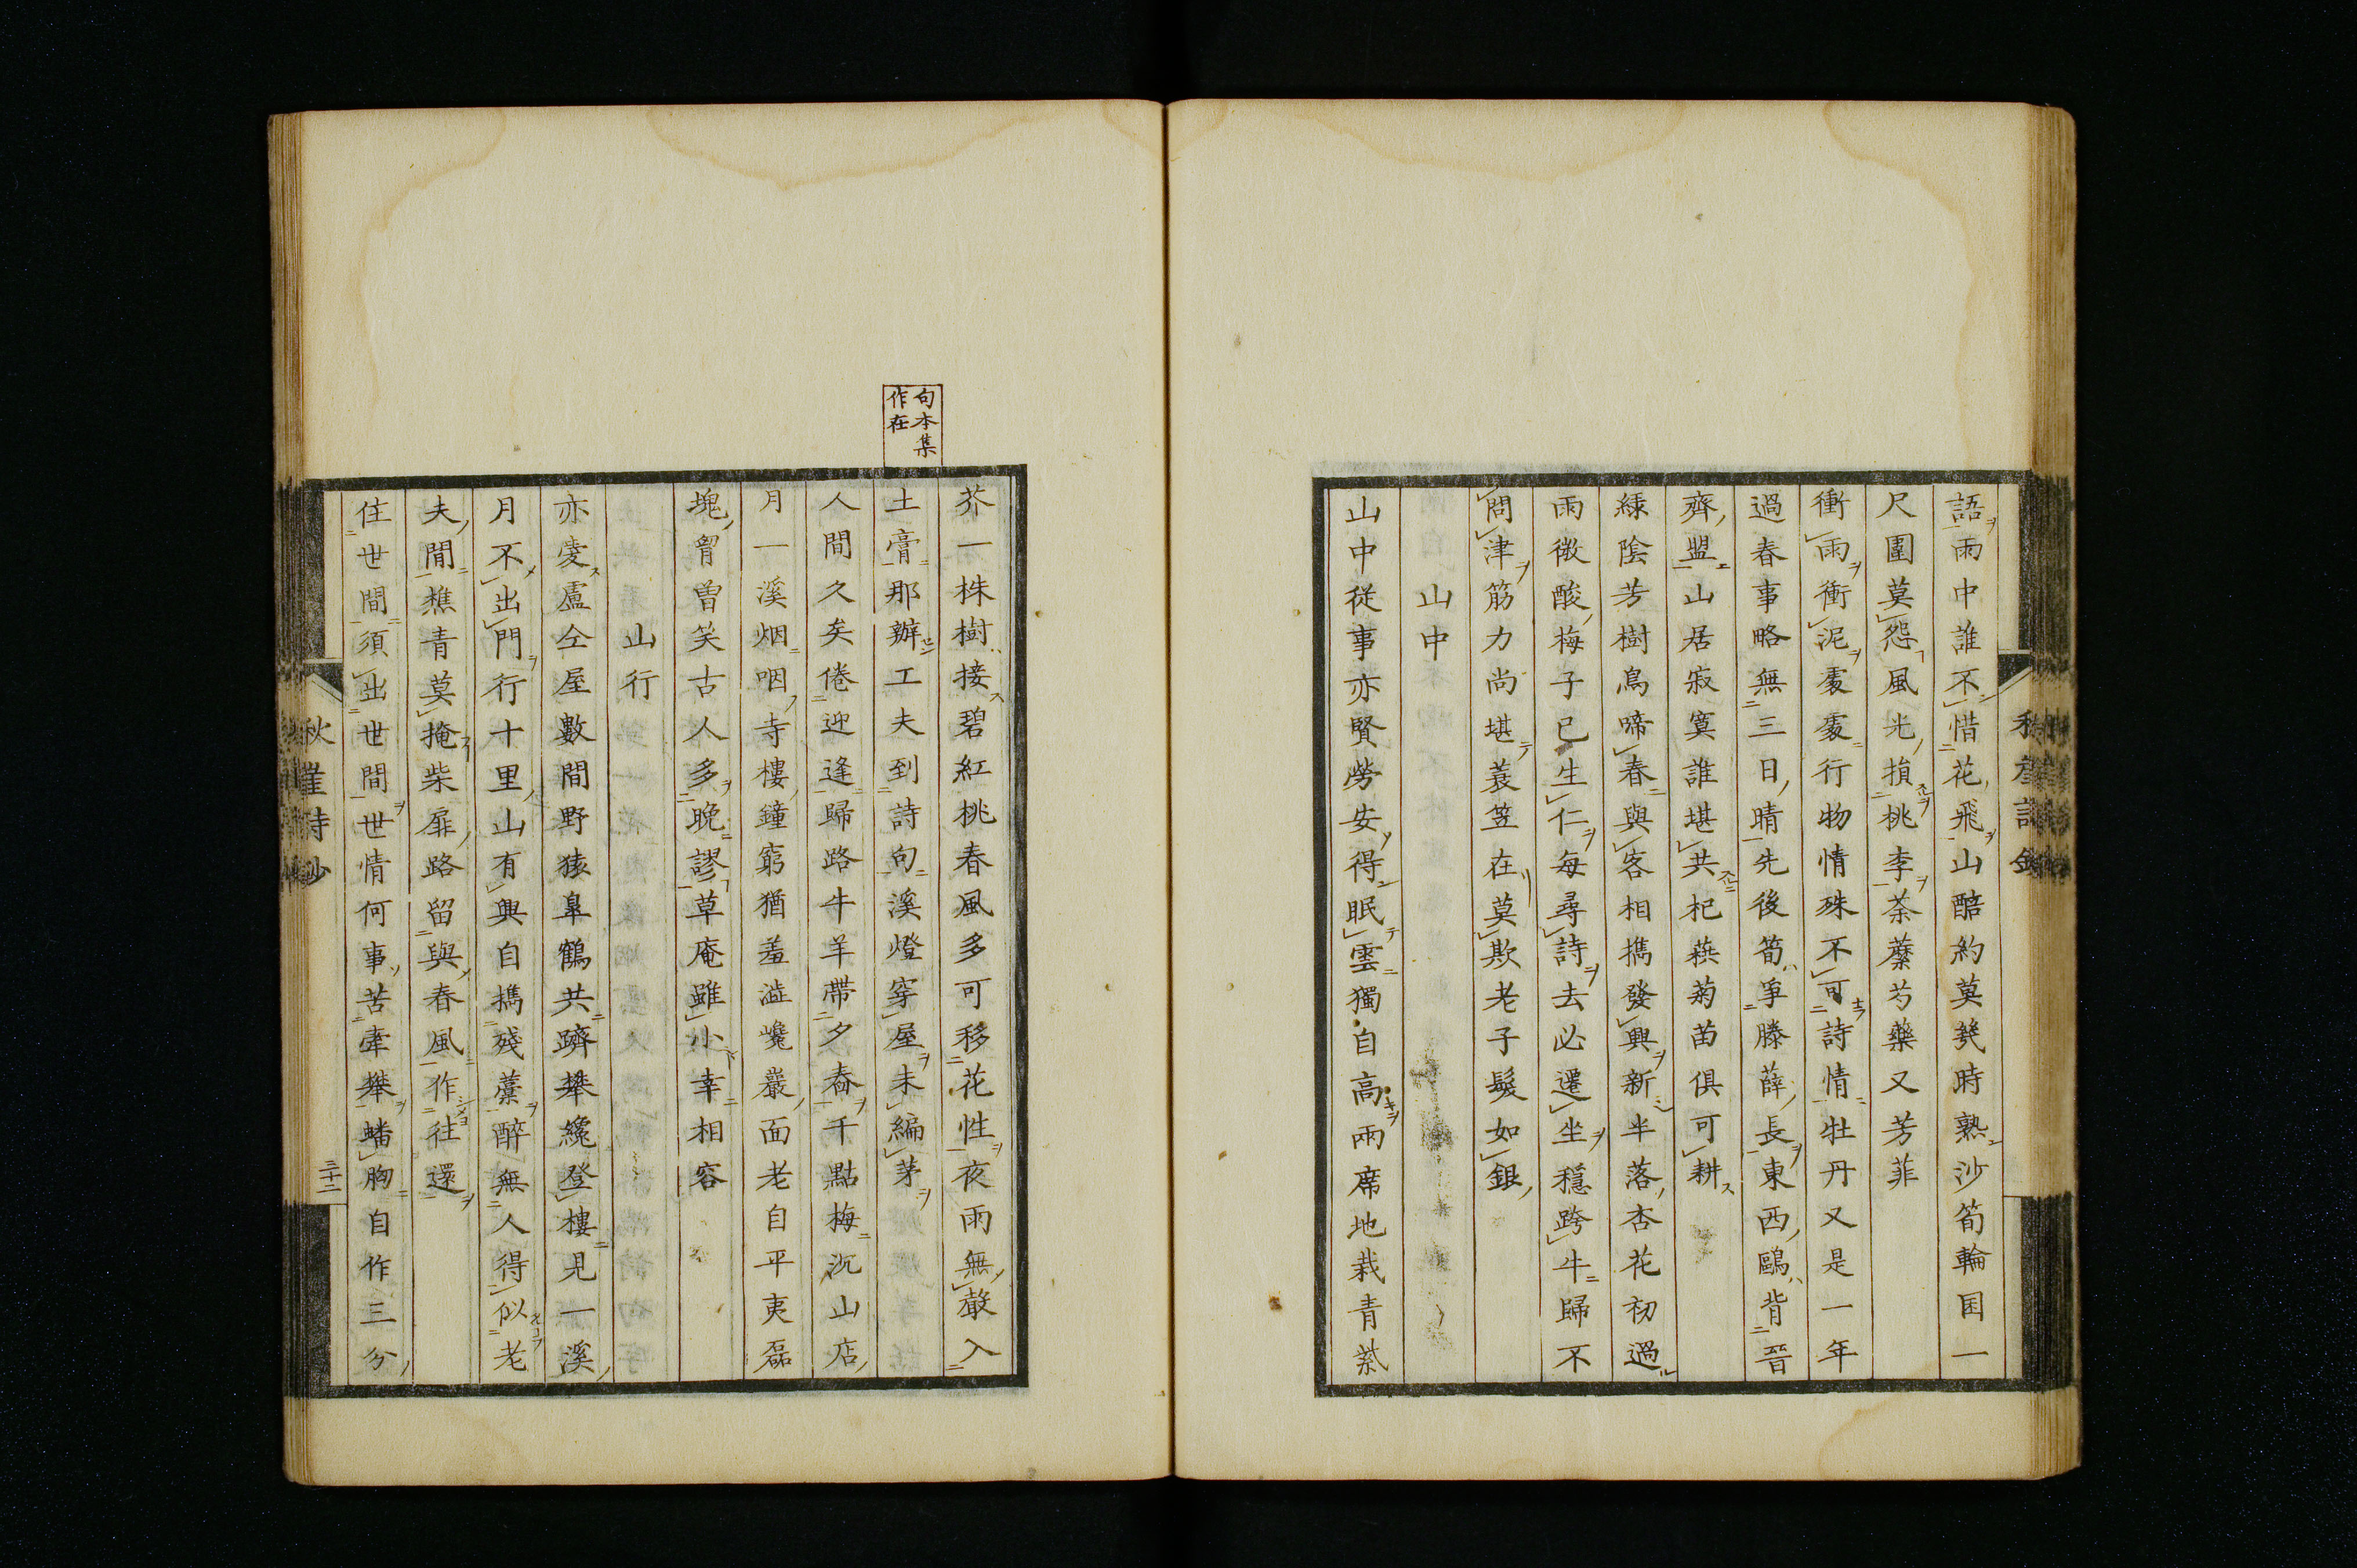 語雨中誰不惜花飛山醅約莫幾時熟沙筍輪囷一
尺圍莫怨風光損桃李荼蘼芍藥又芳菲
衝雨衝泥處處行物情殊不可詩情牡丹又是一年
過春事略無三日晴先後筍爭滕薛長東西鷗背晉
齊盟山居寂寞誰堪共杞菊苗俱可耕
緑陰芳樹鳥啼春與客相携發興新半落杏花初過
雨微酸梅子已生仁每尋詩去必還坐穩跨牛歸不
問津筋力尚堪蓑笠在莫欺老子髮如銀
山中
山中從事亦賢勞安得眠雲獨自高兩席地栽青菜
芥一株樹接碧紅桃春風多可移花性夜雨無聲入
土膏那辦工夫到詩句溪燈穿屋未編茅
句本集
作在
人間久矣倦迎逢歸路牛羊帶夕舂千點梅沉山店
月一溪烟咽寺樓鐘窮猶羞澁巉巖面老自平夷磊
塊胷曽笑古人多晚謬草庵雖小幸相容
山行
亦愛盧仝屋數間野猿皐鶴共躋攀纔登樓見一溪
月不出門行十里山有興自携殘藁醉無人得似老
夫閒樵青莫掩柴扉路留與春風作往還
住世間須出世間世情何事苦牽攀蟠胸自作三分
秋崖詩鈔
三十二